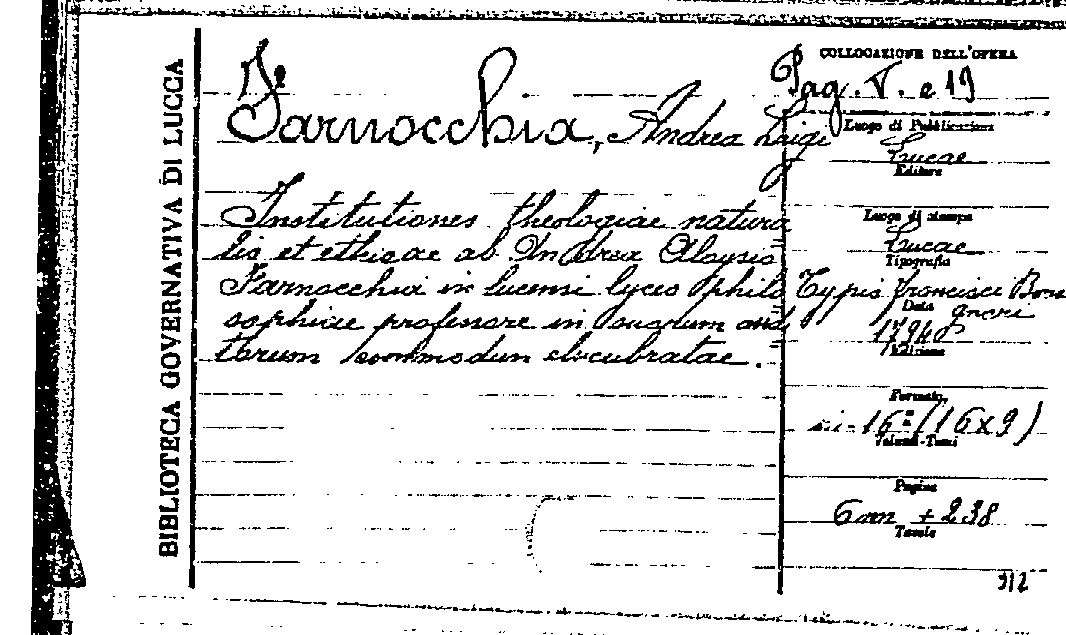 BIBLIOTECA GOVERNATIVA DI LUCCA
Farnocchia, Andrea Luigi
Institutiones theologiae natura
lis et ethicae ab Andrea Aloysio
Farnocchia in lucensi lyceo philo
sophiae professore in suarum audi
torum commodum elucubratae.
COLLOCAZIONE DELL'OPERA
Pag. V. e 19
Luogo di Pubblicazione
Lucae
Editore
Luogo di stampa
Lucae
Tipografia
Typis Francisci Bon
signori
Data
Edizione
Formato
in-16° (16x9)
Volumi-Tomi
Pagine
6nn + 238
Tavole
912